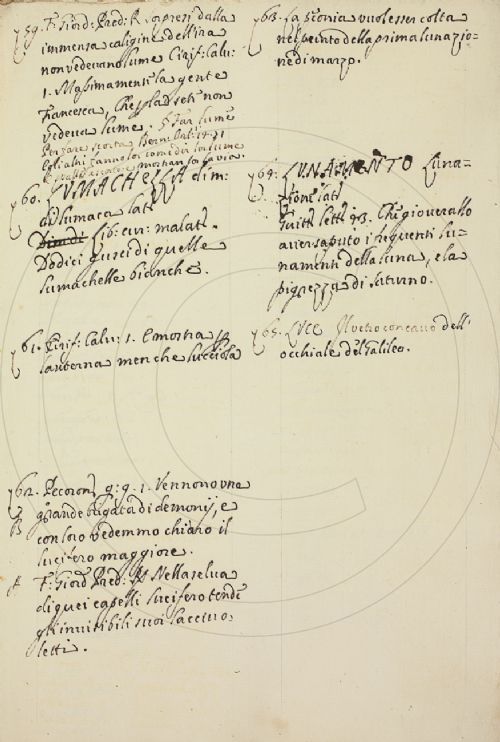 759. F. Giord: Pred: R. sapresi dalla
immensa caligine dell'ira
non vedevano lume. Cirif: Calu:
1. Massimamente la gente
Francesca, che
non
vedeva lume. § Far lume
Per fare scorta Bern: Orl:
Gli altri
lume
760. LUMACHELLA dim:
di lumaca lat.
Dim di Lib: cur: malat.
Dodici gusci di quelle
lumachelle bianche.
761. Cirif: Calu: 1. E mostra
lanterna men che lucciola
762. Pecoron. g: 9. 1. Vennono una
B grande brigata di demonij, e
con loro vedemmo chiaro il
lucifero maggiore.
A F. Giord. Pred: R. Nella selva
di quei capelli lucifero tende
gli invisibili suoi lacciuo-
letti.
763. La pionia vuol esser colta
nel
della prima lunazio-
ne di marzo.
764. LUNAMENTO Luna-
zione lat.
Guitt. lett: 93. Che gioverallo
aver saputo i frequenti lu-
namenti della luna, e la
pigrezza di saturno.
765. LUCE Il vetro concavo dell'
occhiale del Galileo.